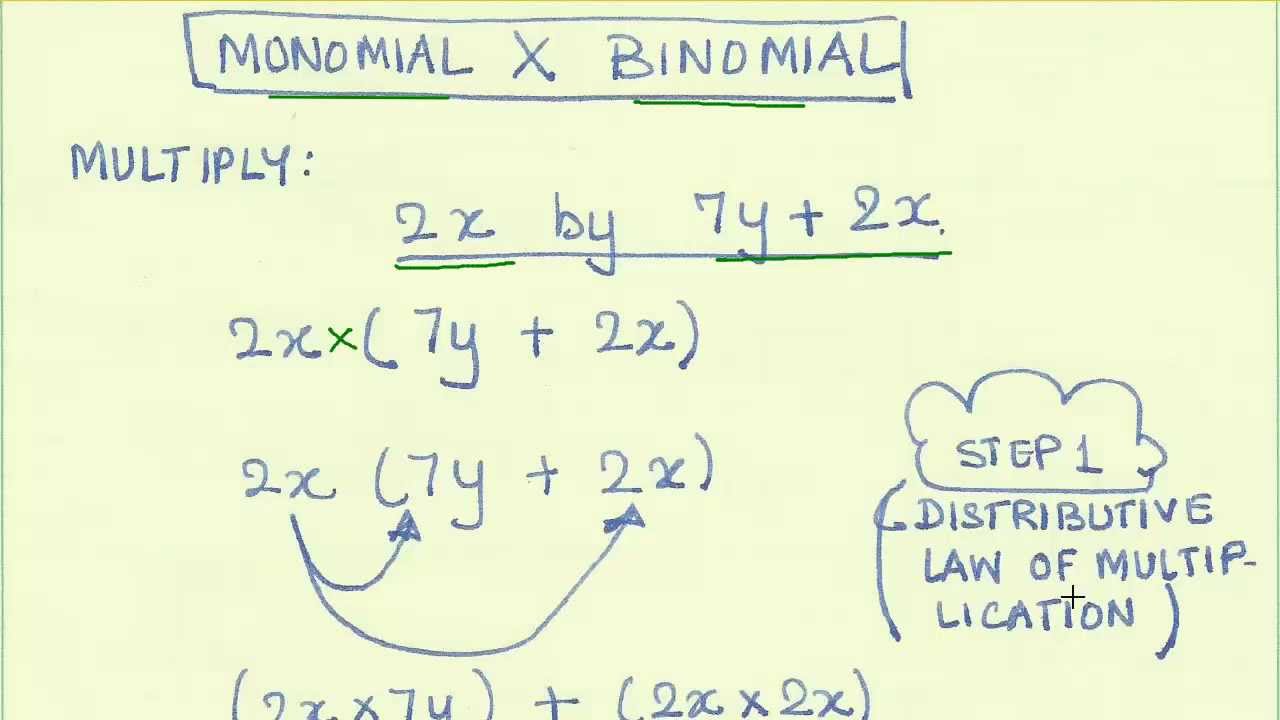 MONOMIAL X BINOMIAL
MULTIPLY:
2x by 7y + 2x.
2x × ( 7y + 2x)
2x (7y + 2x)
STEP 1
(DISTRIBUTIVE
LAW OF MULTIP-
LICATION)
(2x × 7y) + (2x × 2x)